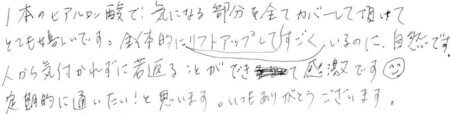 1本のヒアルロン酸で気になる部分を全てカバーして頂けて
とても嬉しいです。全体的にリフトアップしてすごくいるのに、自然です。
人から気付かれずに若返ることができて感激です
定期的に通いたい!と思います。いつもありがとうございます。